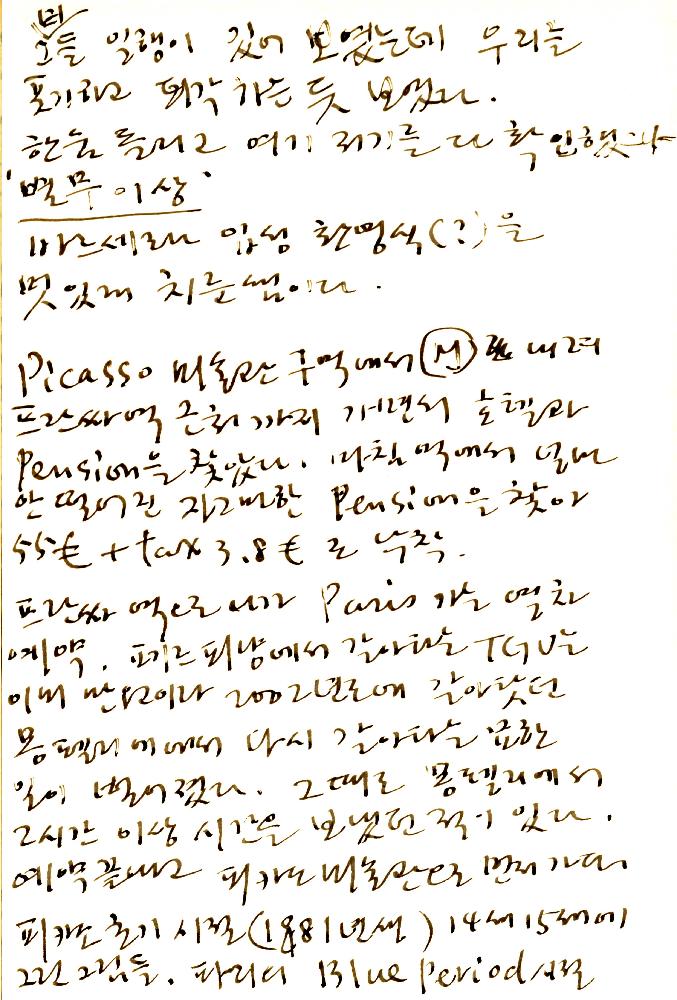 일행이 있어 보였는데 우리를
포기하고 퇴각하는 듯 보였다.
한숨 돌리고 여기 저기를 다 확인했다
'별무이상'
바르세로나 입성 환영식(?)을
멋있게 치룬셈이다.
Picasso 미술관 구역에서 Ⓜ로 내려
프란싸역 근처까지 가면서 호텔과
Pension을 찾았다. 마침 역에서 얼마
안 떨어진 자그마한 Pension을 찾아
55€ + tax 3.8€ 로 낙착.
프란싸 역으로 나가 Paris 가는 열차
예약. 페르피냥에서 갈아타는 TGV는
이미 만원이라 2002년도에 갈아탔던
몽펠리에에서 다시 갈아타는 묘한
일이 벌어졌다. 그때도 몽펠리에서
2시간 이상 시간을 보냈던 적이 있다.
예약 끝내고 피카소 미술관으로 먼저 가다.
피카소 초기 시절(1881년생) 14세 15세에
그린 그림들. 파리의 Blue Period 시절